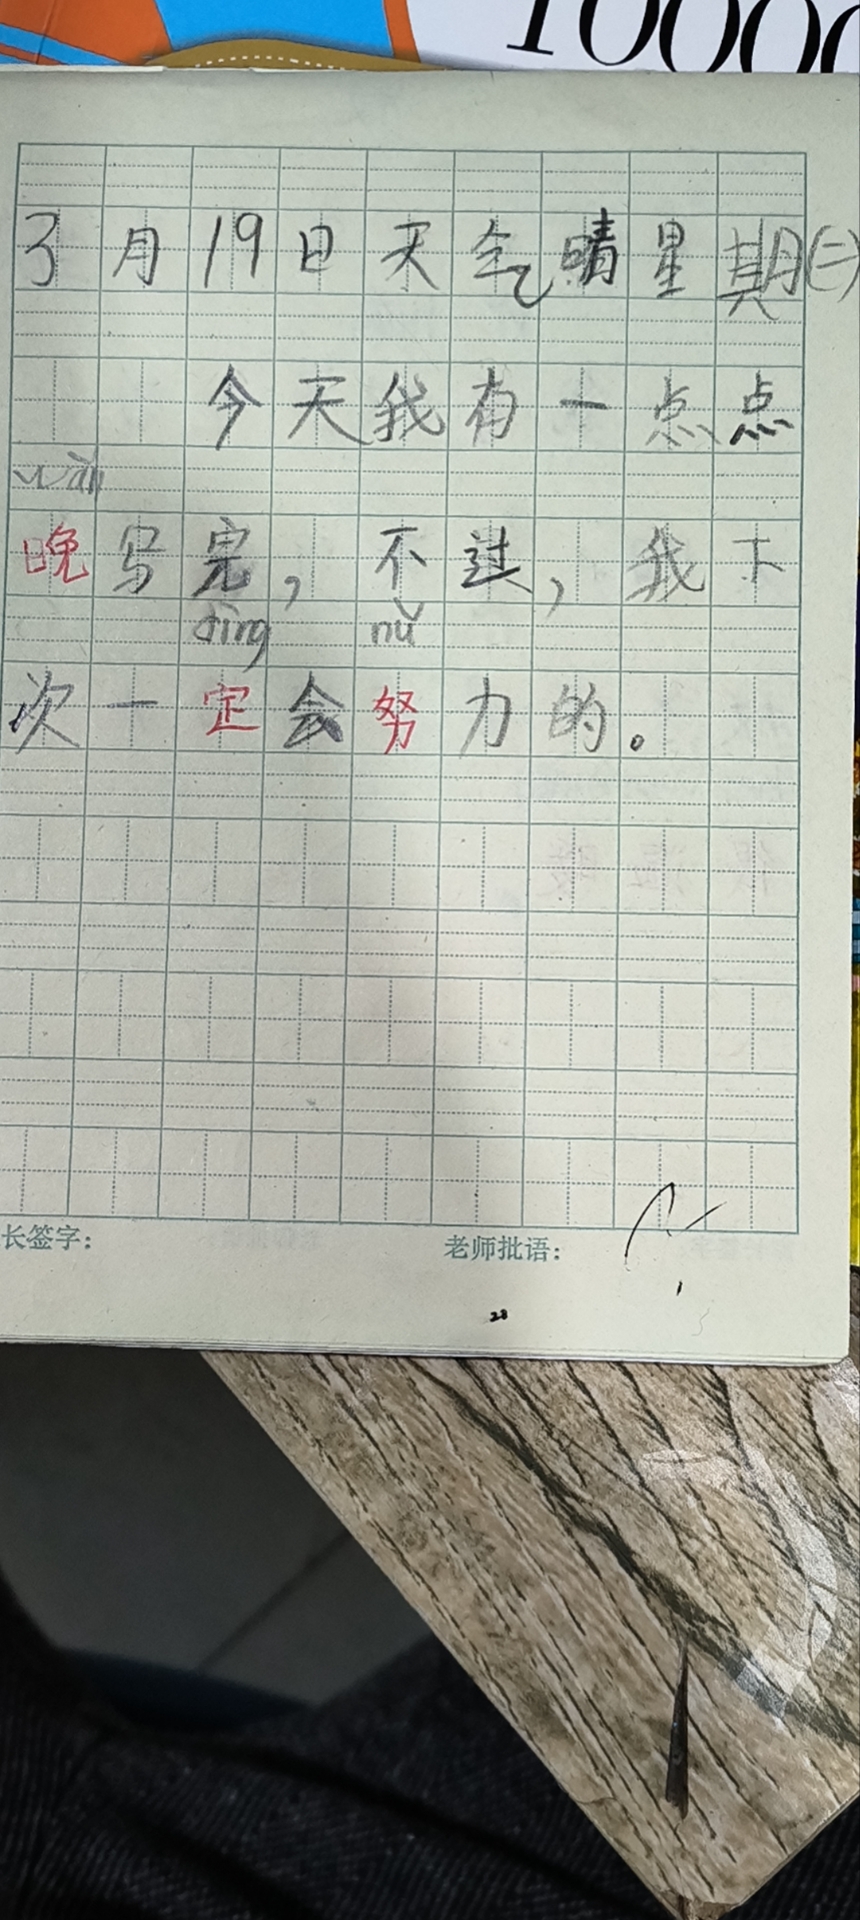 1000
3月19日天气晴星期(二)
今天我有一点点
wǎn
晚写完，不过，我下
dìng nǔ
次一定会努力的。
长签字：
老师批语：
28